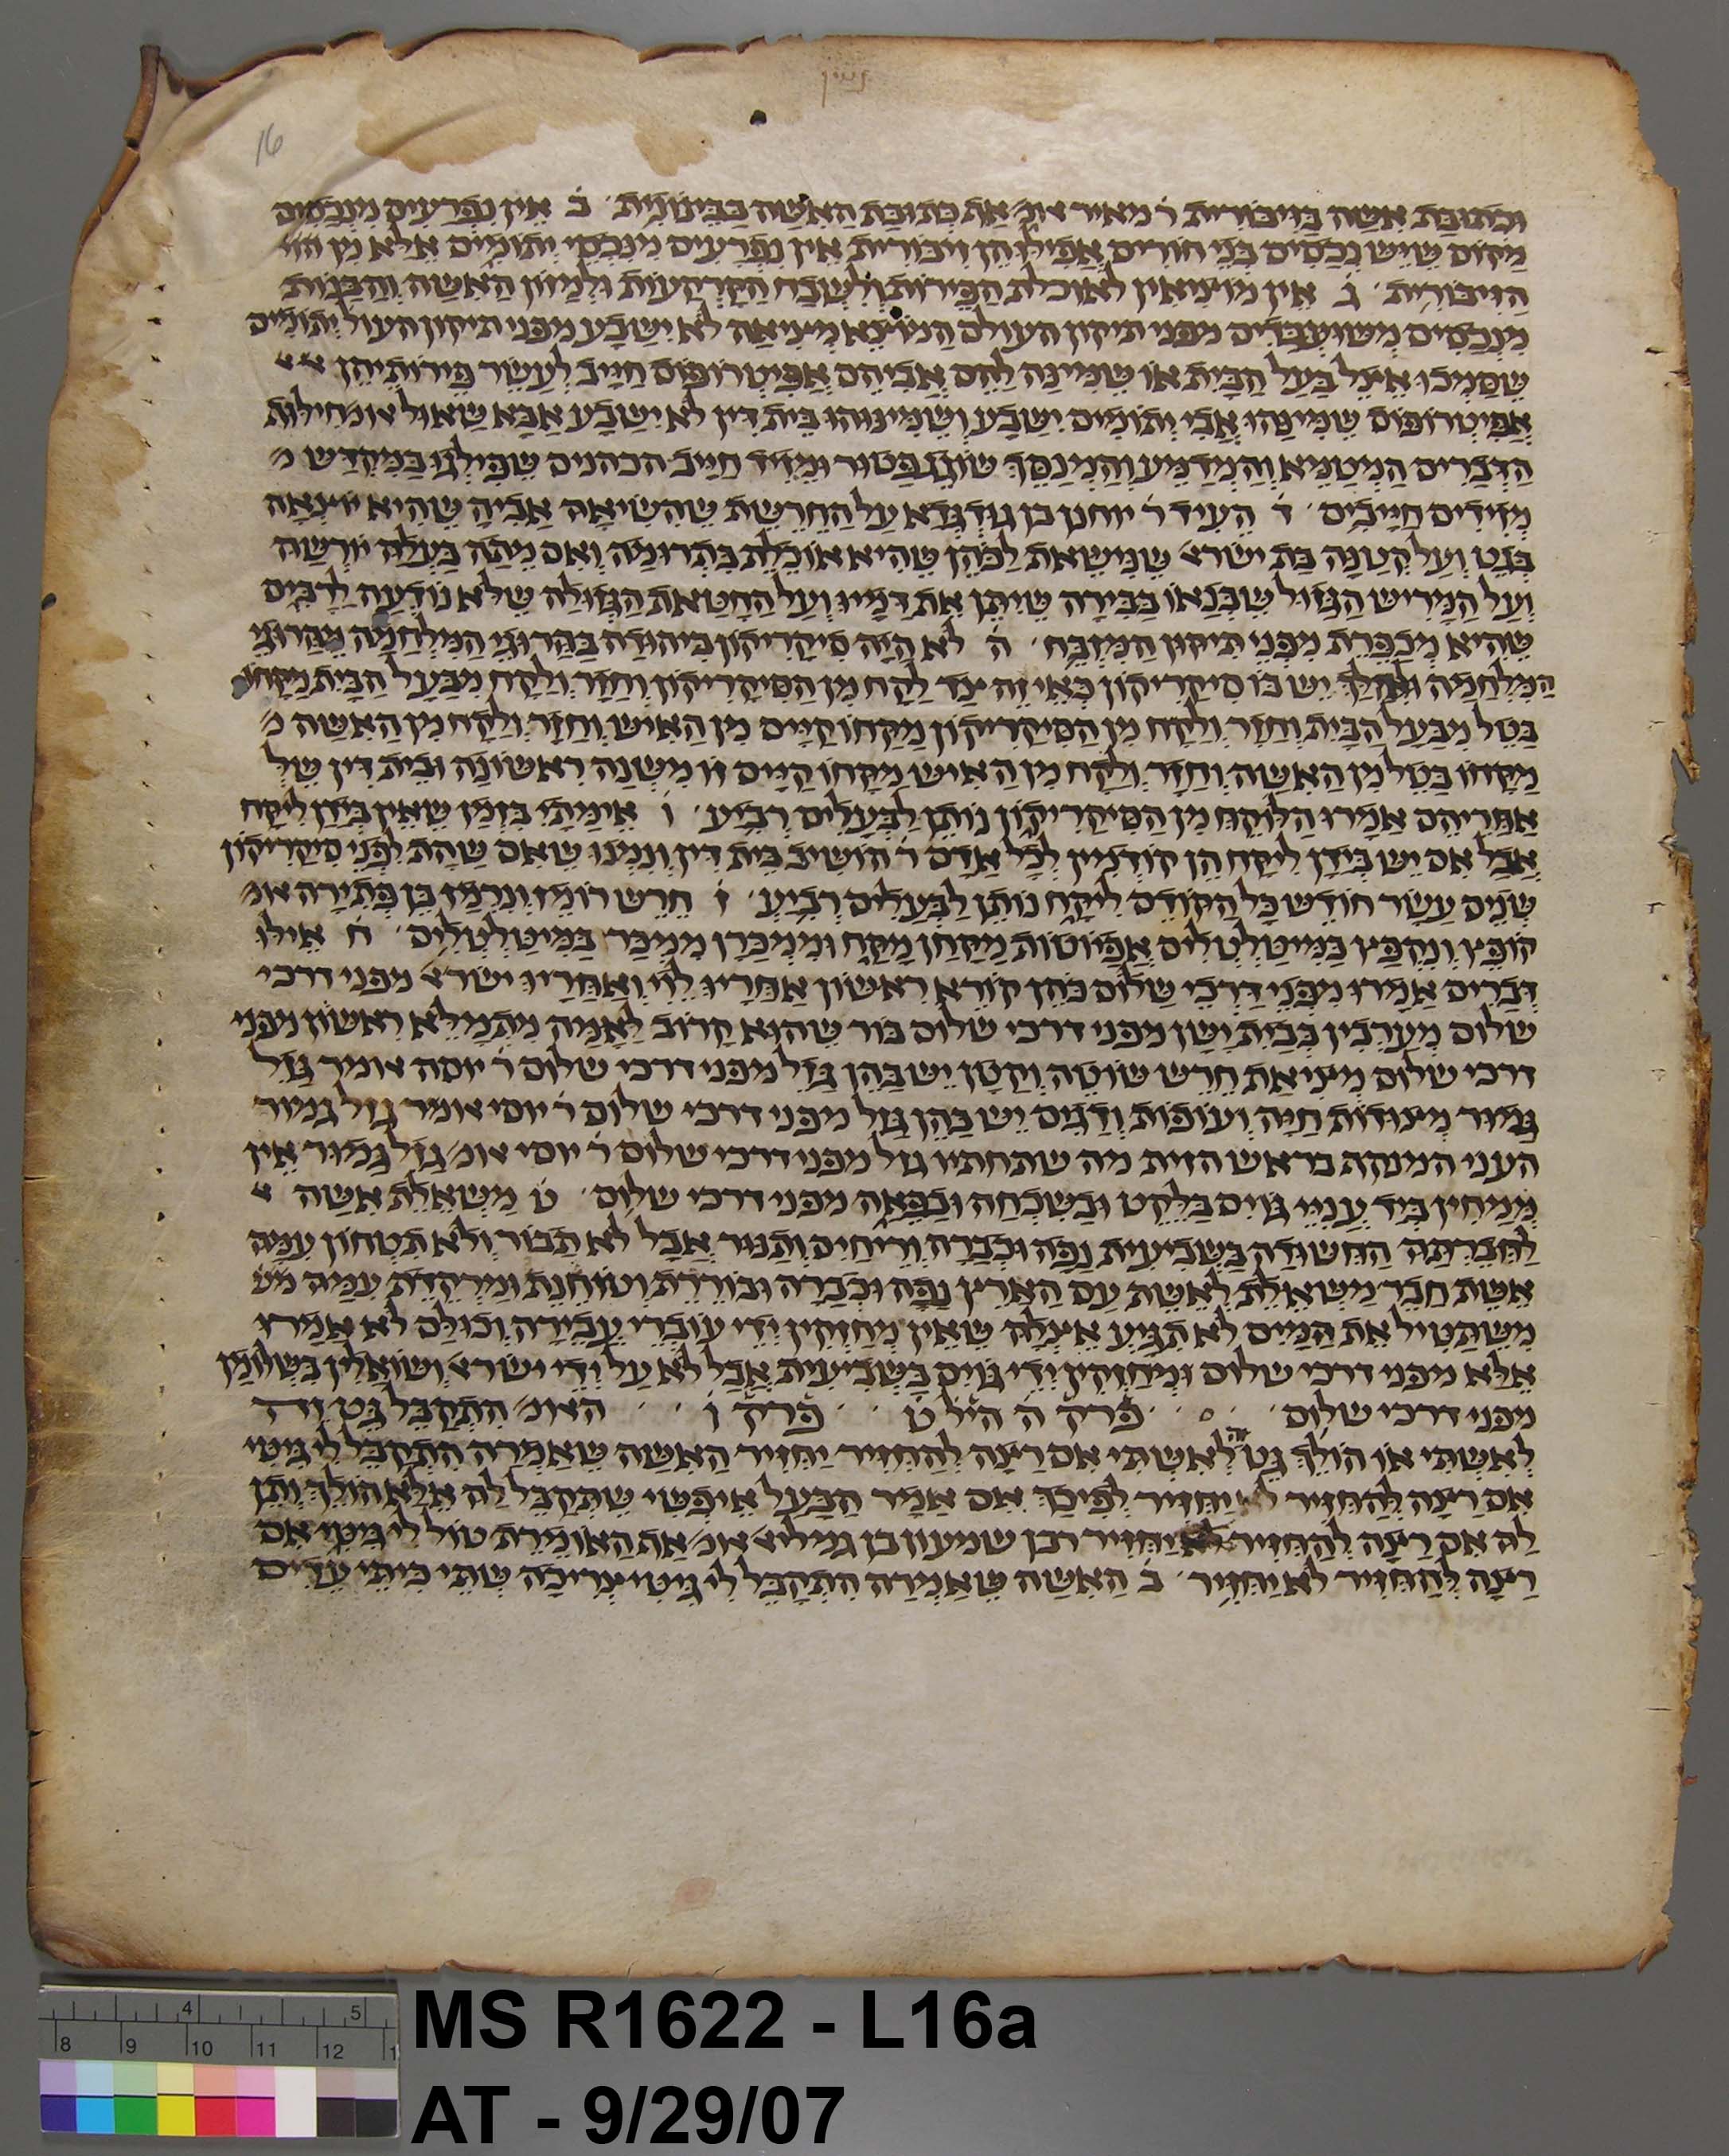 גיטין
16
וכתובת אשה בזיבורית ר׳ מאיר אומ׳ אף כתובת האשה בבינונית ׳ ב אין נפרעים מנכסים
מקום שיש נכסים בני חורים אפילו הן זיבורית אין נפרעים מנכסי יתומים אלא מן הזי
הזיבורית ׳ ג אין מוציאין לאוכלת הפירות ולשבח הקרקעות ולמזון האשה והבנות
מנכסים משועבדים מפני תיקון העולם המוצא מציאה לא ישבע מפני תיקון העול יתומים
שסמכו אצל בעל הבית או שמינה להם אביהם אפיטרופוס חייב לעשר פירותיהן
אפיטרופוס שמינהו אבי יתומים ישבע ושמינוהו בית דין לא ישבע אבא שאול אומ׳ חילוף
הדברים המטמא והמדמע והמנסך שוגג פטור ומזיד חייב הכהנים שפיגלו במקדש
מזידים חייבים ׳ ד העיד ר׳ יוחנן בן גודגדא על החרשת שהשיאה אביה שהיא יוצאה
בגט ועל קטנה בת ישרא׳ שנישאת לכהן שהיא אוכלת בתרומה ואם מתה בעלה יורשה
ועל המריש הגזול שבנאו בבירה שיתן את דמיו ועל החטאת הגזולה שלא נודעה לרבים
שהיא מכפרת מפני תיקון המזבח ׳ ה לא היה סיקריקון ביהודה בהרוגי המלחמה מהרוגי
המלחמה ואילך יש בו סיקריקון כאי זה צד לקח מן הסיקריקון וחזר ולקח מבעל הבית מקחו
בטל מבעל הבית וחזר ולקח מן הסיקריקון מקחו קיים מן האיש וחזר ולקח מן האשה
מקחו בטל מן האשה וחזר ולקח מן האיש מקחו קיים זו משנה ראשונה ובית דין של
אחריהם אמרו הלוקח מן הסיקריקון נותן לבעלים רביע ׳ ו אימתי בזמן שאין בידן ליקח
אבל אם יש בידן ליקח הן קודמין לכל אדם ר׳ הושיב בית דין ונמנו שאם שהת לפני סיקריקון
שנים עשר חודש כל הקודם ליקח נותן לבעלים רביע ׳ ז חרש רומז ונרמז בן בתירה אומ׳
קופץ ונקפץ במיטלטלים הפיוטות מקחן מקח וממכרן ממכר במיטלטלים ׳ ח אילו
דברים אמרו מפני דרכי שלום כהן קורא ראשון אחריו לוי ואחריו ישרא׳ מפני דרכי
שלום מערבין בבית ישן מפני דרכי שלום בור שהוא קרוב לאמה מתמלא ראשון מפני
דרכי שלום מציאת חרש שוטה וקטן יש בהן גזל מפני דרכי שלום ר׳ יוסה אומר גזל
גמור מצודות חיה ועופות ודגים יש בהן גזל מפני דרכי שלום ר׳ יוסי אומר גזל גמור
העני המנקף בראש הזית מה שתחתיו גזל מפני דרכי שלום ר׳ יוסי אומ׳ גזל גמור אין
ממחין ביד עניי גוים בלקט ובשכחה ובפאה מפני דרכי שלום ׳ ט משאלת אשה
לחברתה החשודה בשביעית נפה וכברה וריחים ותנור אבל לא תבור ולא תטחון עמה
אשת חבר משאלת לאשת עם הארץ נפה וכברה ובוררת וטוחנת ומרקדת עמה מש
משתטיל את המים לא תגיע אצלה שאין מחזקין ידי עוברי עבירה וכולם לא אמרו
אלא מפני דרכי שלום ומחזקין ידי גוים בשביעית אבל לא על ידי ישרא׳ ושואלין בשלומן
מפני דרכי שלום ׳ ׳ פרק ה היל ט ׳ ׳ פרק ו ׳ ׳ האומ׳ התקבל גט זה
לאשתי או הולך גט זה לאשתי אם רצה להחזיר יחזיר האשה שאמרה התקבל לי גיטי
אם רצה להחזיר לא יחזיר לפיכך אם אמר הבעל אי אפשי שתקבל לה אלא הולך ותן
לה אם רצה להחזיר יחזיר רבן שמעון בן גמליא׳ אומ׳ אף האומרת טול לי גיטי אם
רצה להחזיר לא יחזיר ׳ ב האשה שאמרה התקבל לי גיטי צריכה שתי כיתי עדים
MS R1622 - L16a
AT - 9/29/07
4 5
8 9 10 11 12